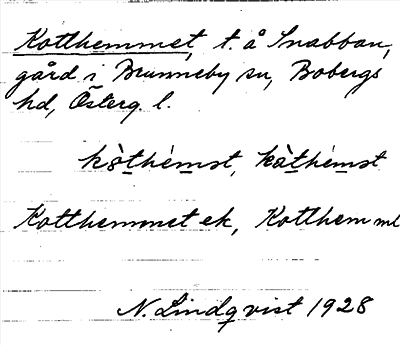 Kotthemmet, t. å Snabban,
gård i Brunneby sn, Bobergs
hd, Österg. l.
kòthémst, kàthémst
Kotthemmet ek, Kotthemmet
N. Lindqvist 1928